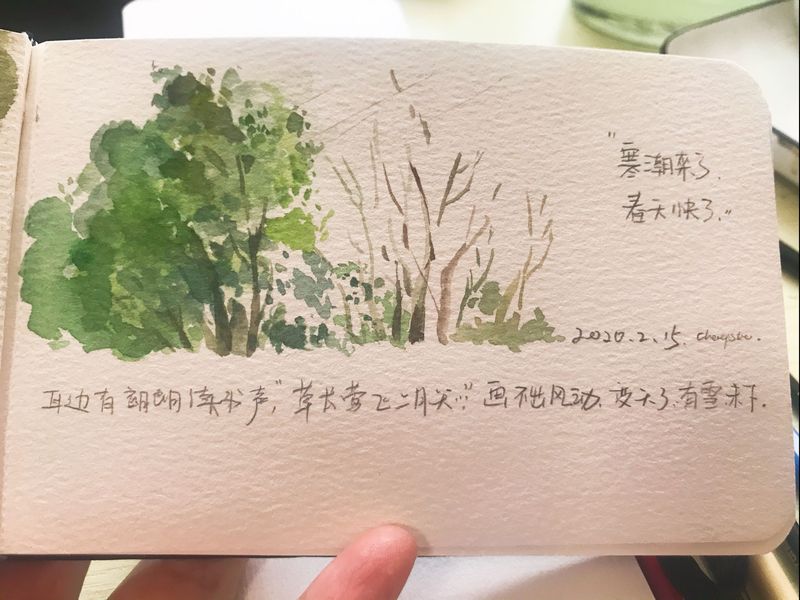 "寒潮来了,
春天快了."
2020.2.15.
耳边有朗朗读书声,"草长莺飞二月天…"画不出风动,变天了,有雪未下.